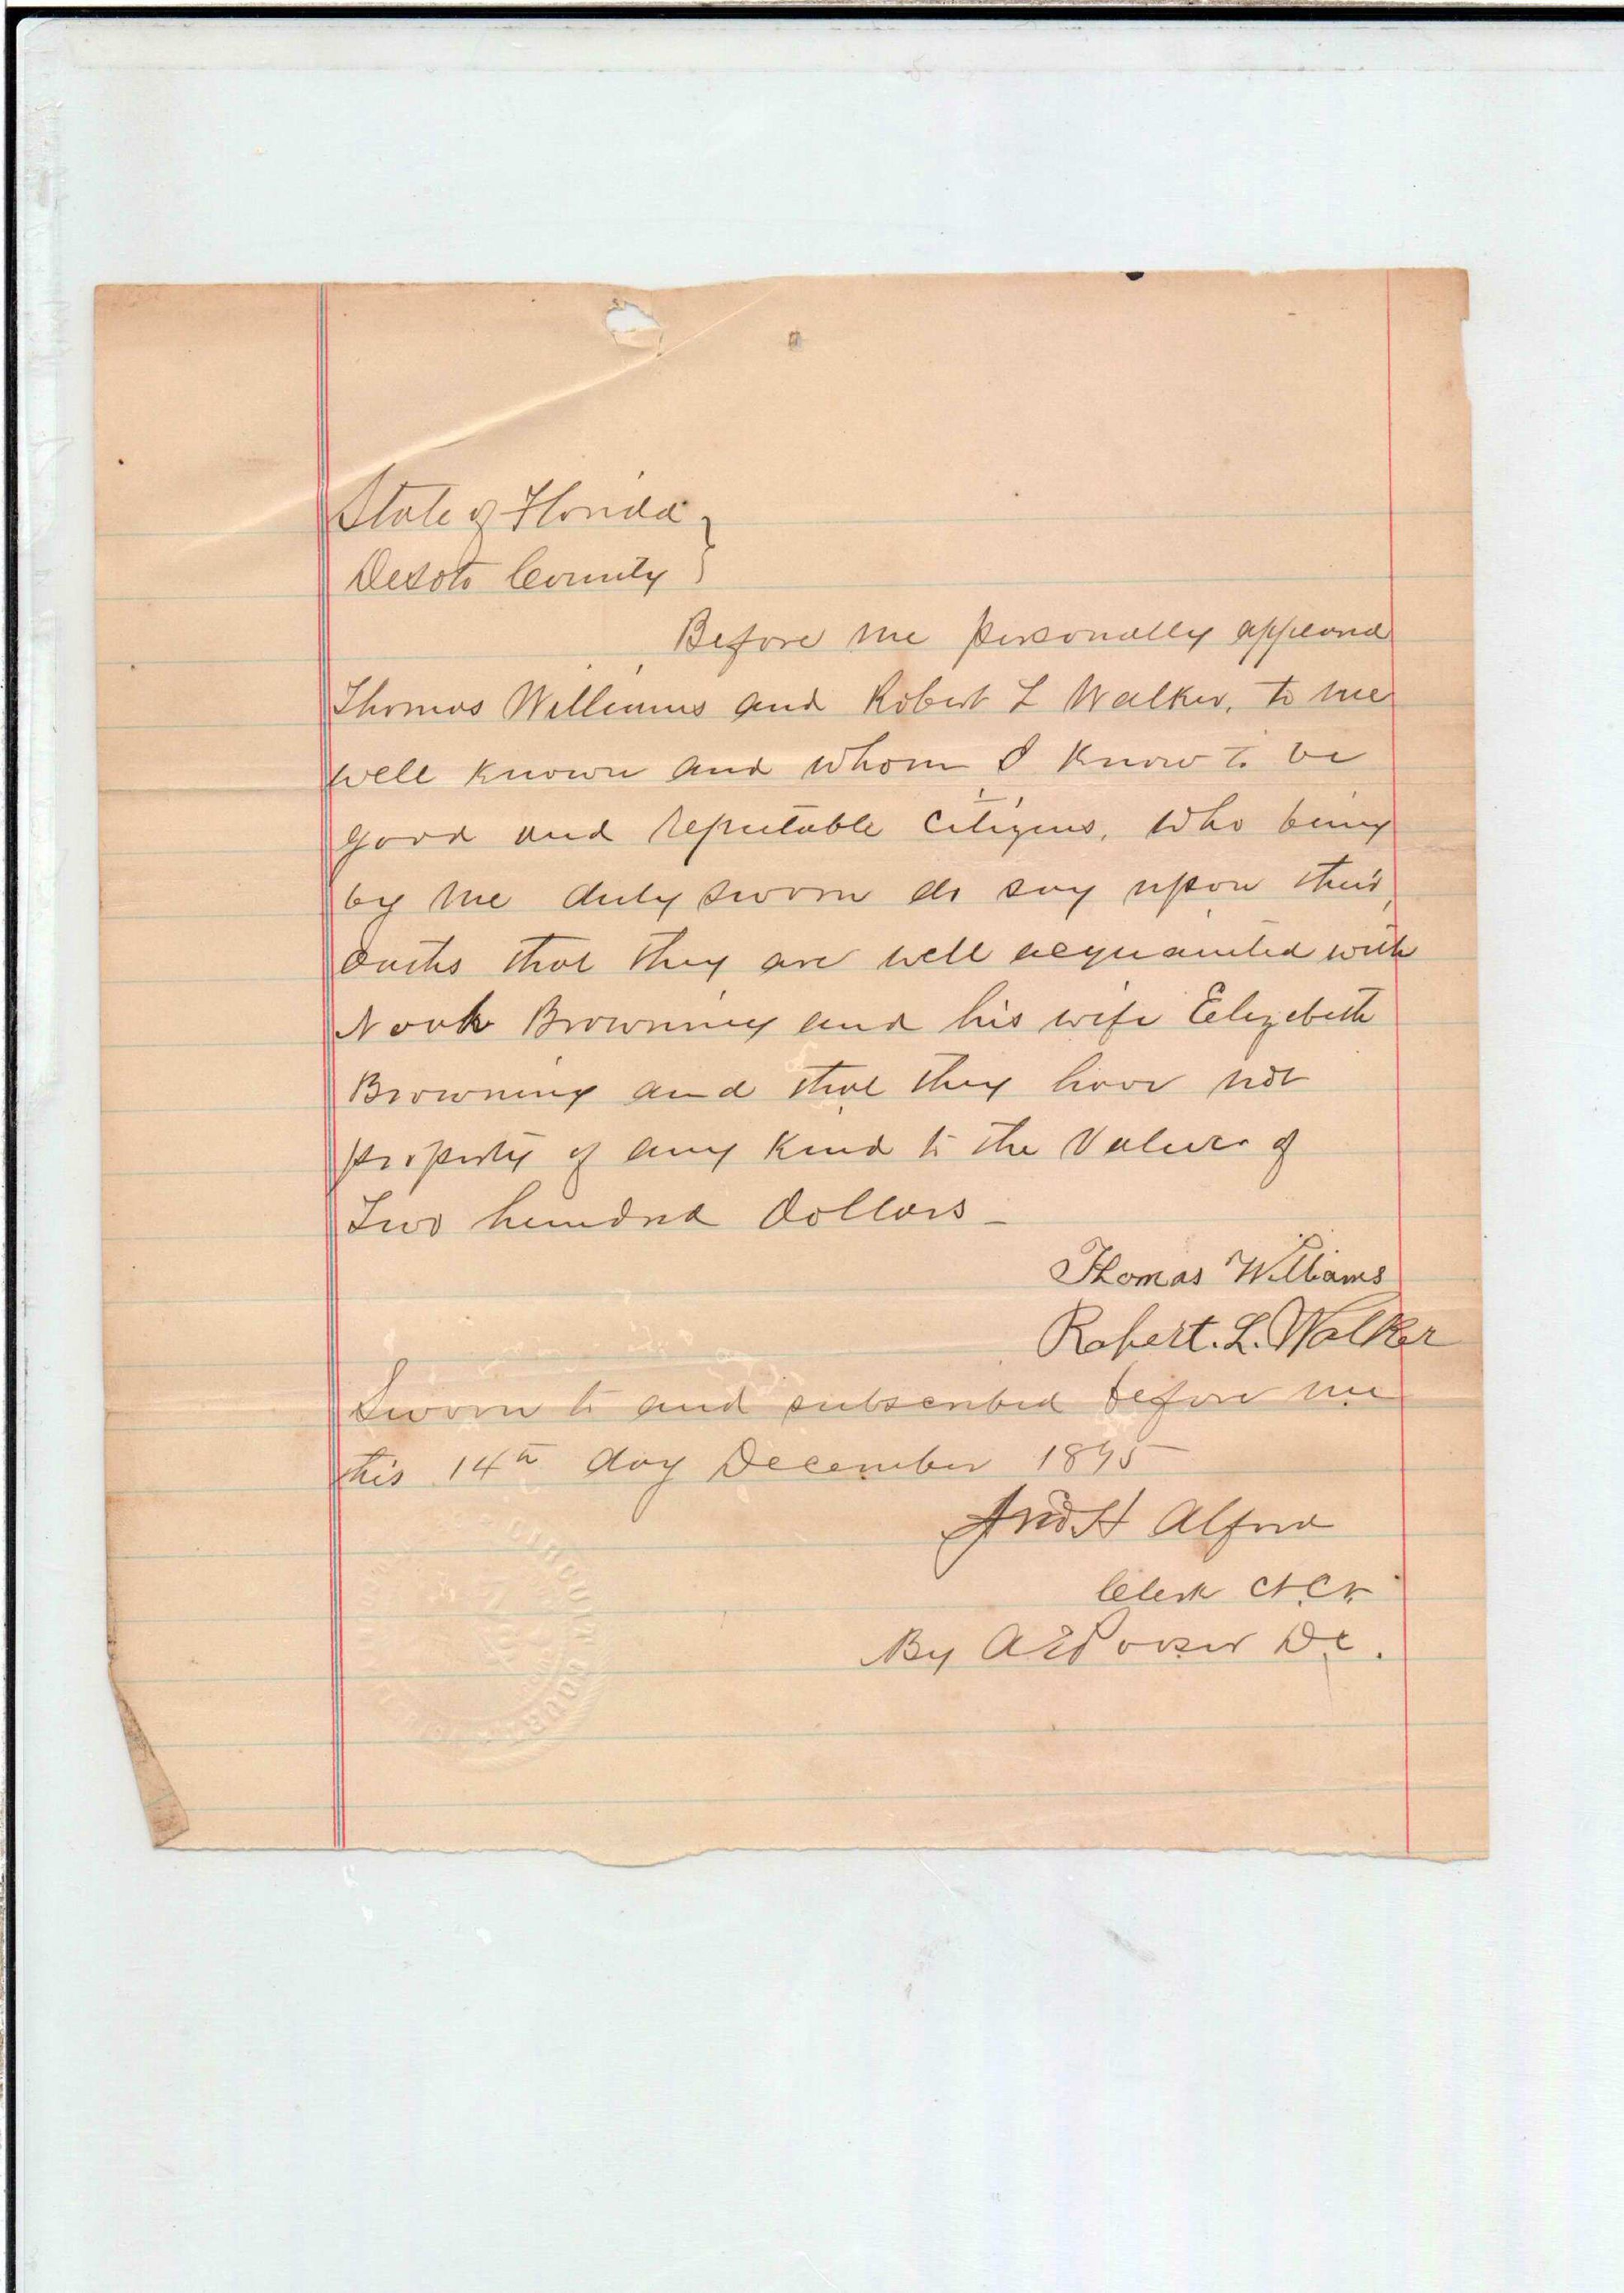 State of Florida
Desoto County
Before me personally appeared
Thomas Williams and Robert L Walker, to me
well known and whom I know to be
good and reputable citizens, who being
by me duly sworn do say upon their
oaths that they are well acquainted with
Noah Browning and his wife Elizebeth
Browning and that they have not
property of any kind to the Value of
Two hundred Dollars
Thomas Williams
Robert. L. Walker
Sworn to and subscribed before me
this 14th day December 1895
Clerk
By DC.